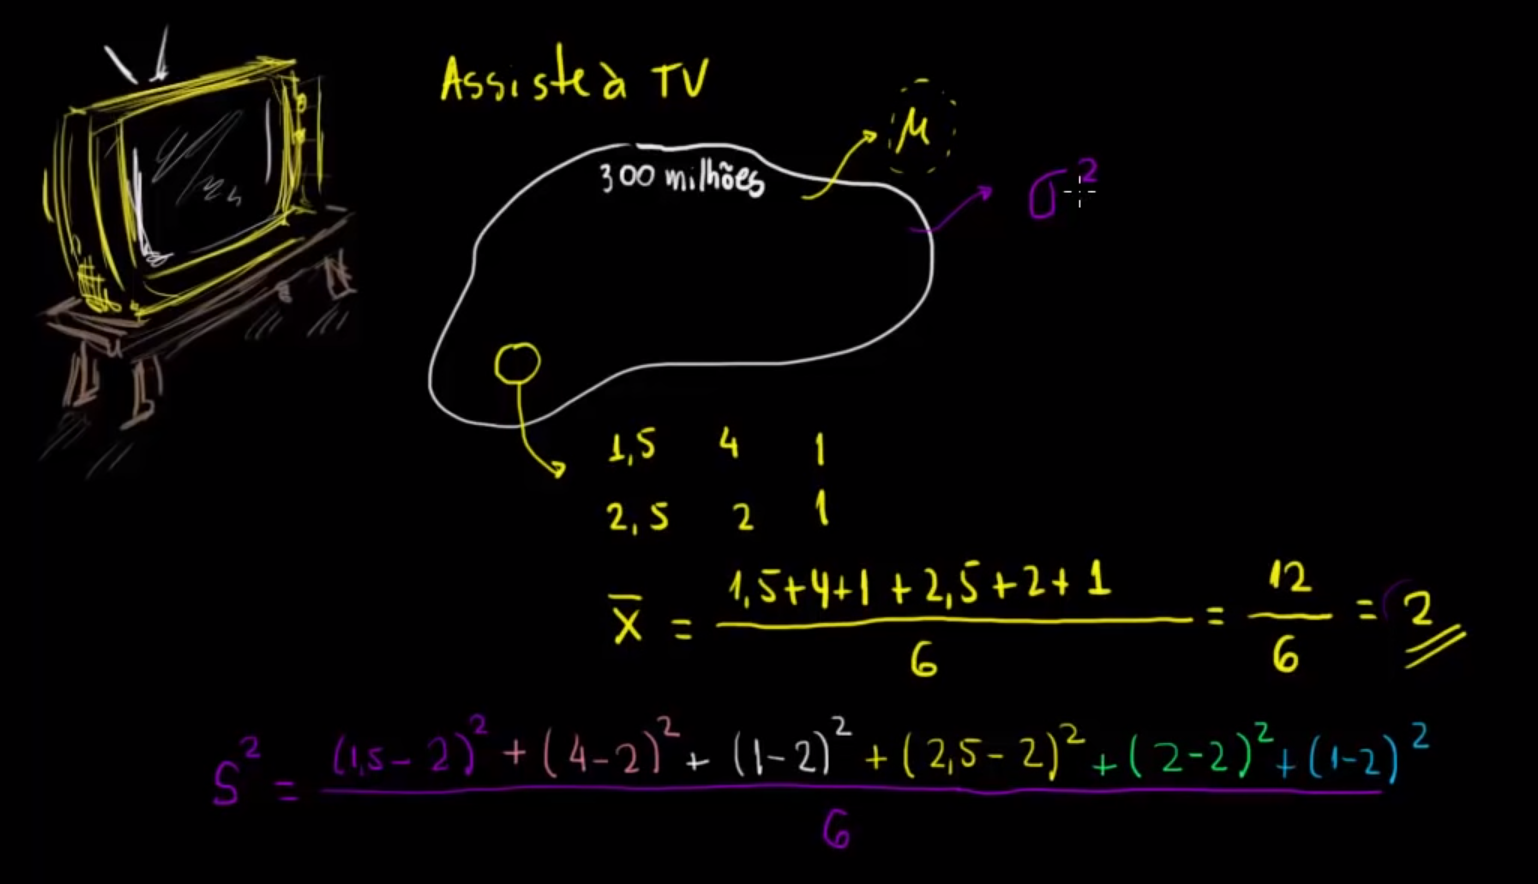 Assiste à TV
μ
300 milhões
σ²
1,5 4 1
2,5 2 1
x̅ = (1,5+4+1+2,5+2+1)/6 = 12/6 = 2
S² = ((1,5-2)² + (4-2)² + (1-2)² + (2,5-2)² + (2-2)² + (1-2)²)/6